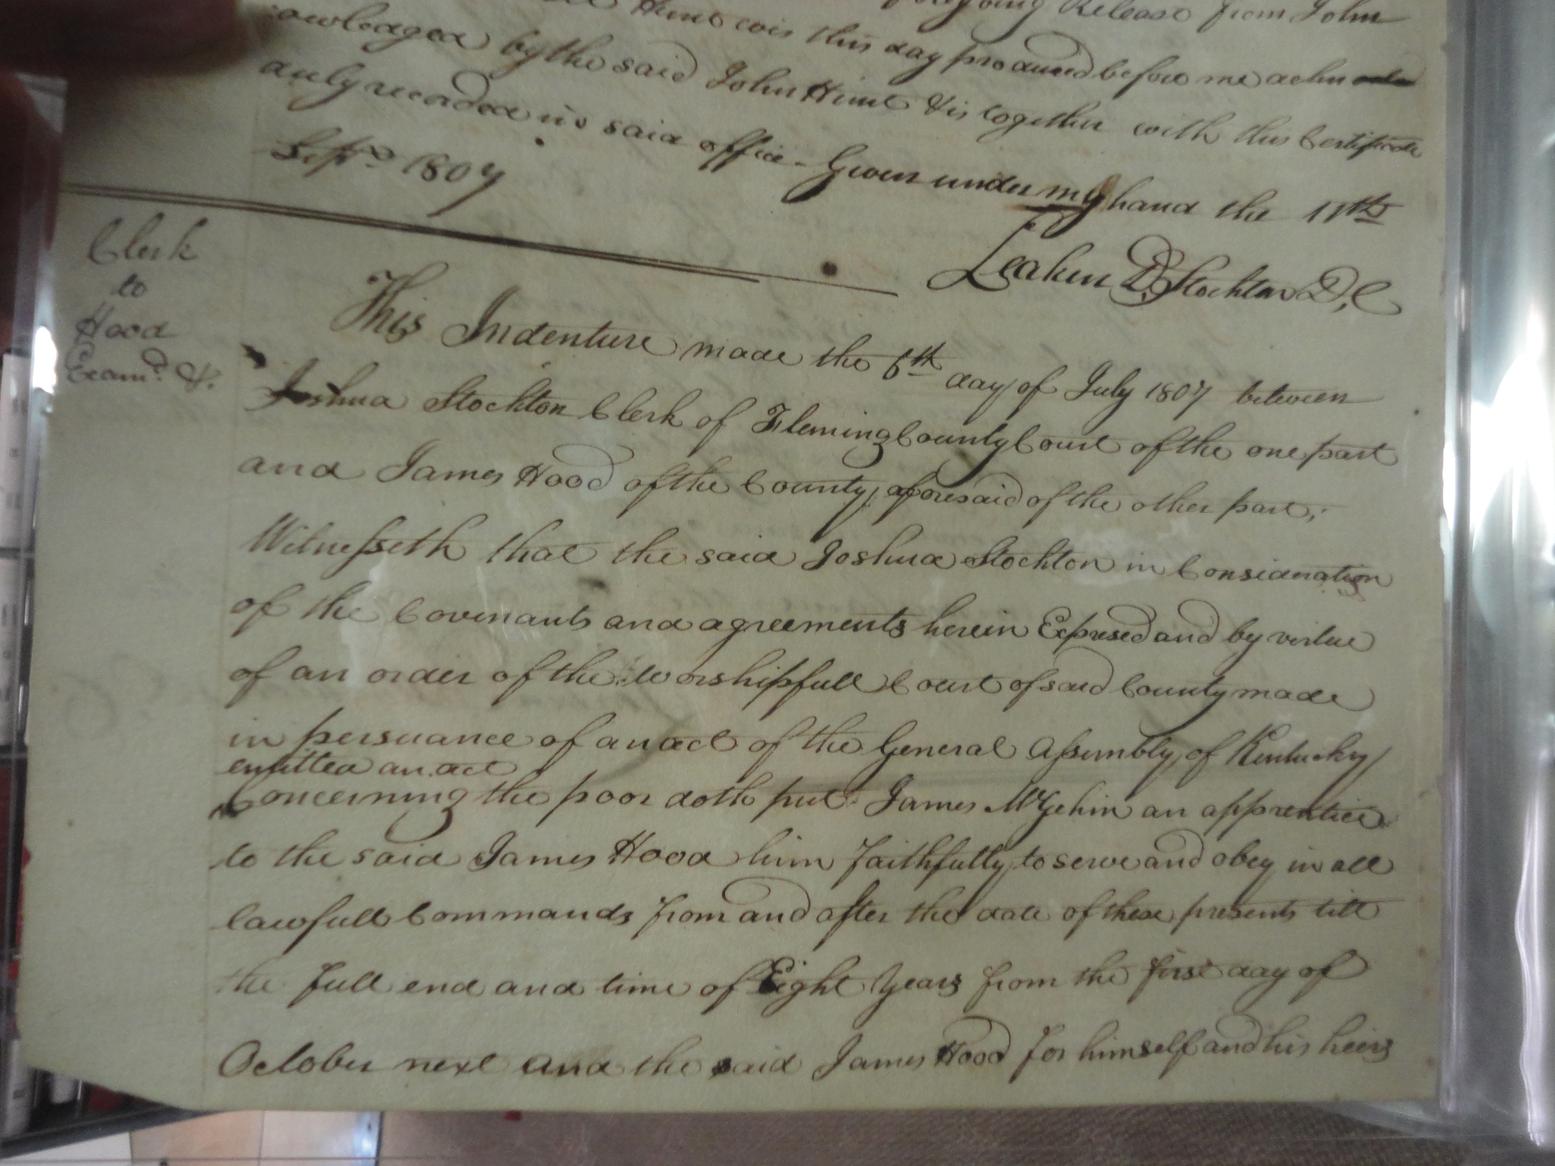 foregoing Release from John
Hunt was this day produced before me acknow
owledged by the said John Hunt & is together with this Certificate
duly recorded in said office - Given under my hand the 11th
Sept. 1807
Leaken D. Stockton D. C
Clerk
to
Hood
Exam.d &.
This Indenture made the 6th day of July 1807 between
Joshua Stockton Clerk of Fleming County Court of the one part
and James Hood of the County aforesaid of the other part;
Witnesseth that the said Joshua Stockton in Consideration
of the Covenants and agreements herein Expresed and by virtue
of an order of the worshipfull Court of said County made
in persuance of an act of the General Assembly of Kentucky
entitled an act
Concerning the poor doth put James McGehin an apprentice
to the said James Hood him faithfully to serve and obey in all
lawfull Commands from and after the date of these presents till
the full end and time of Eight Years from the first day of
October next and the said James Hood for himself and his heirs